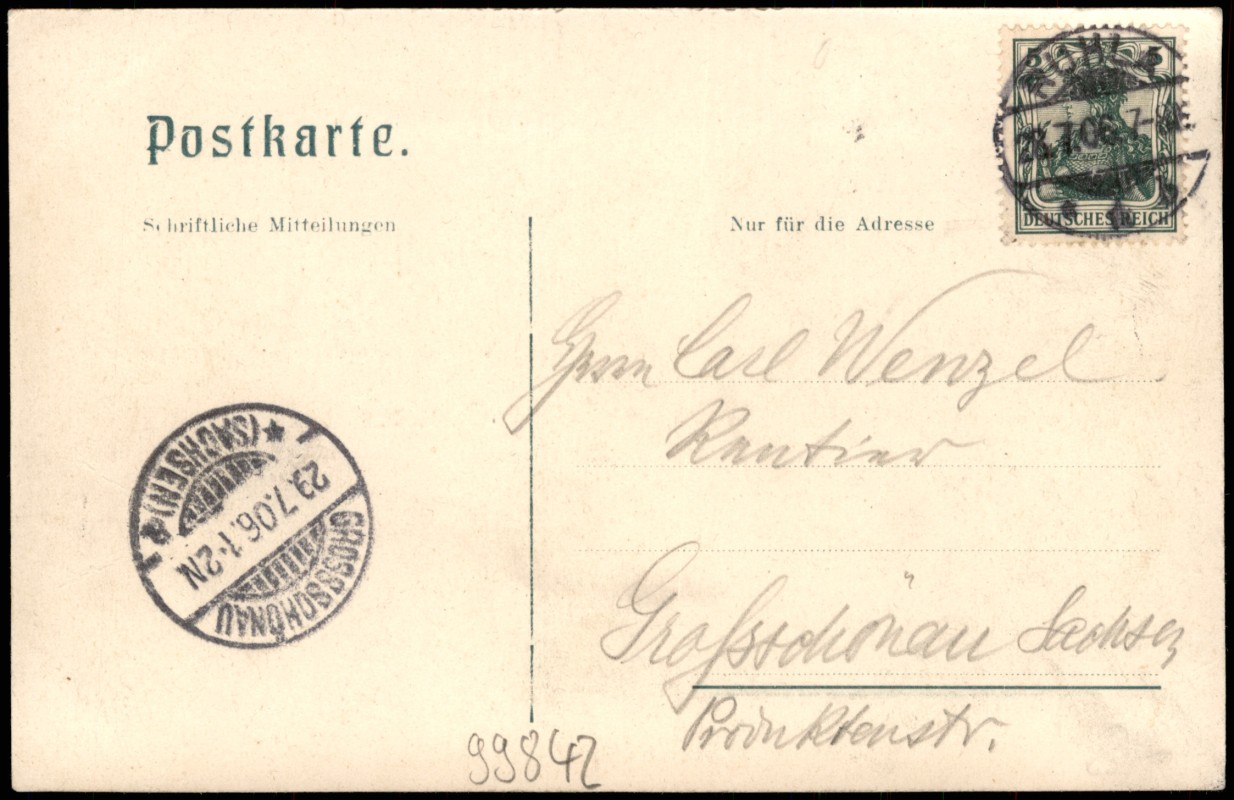 Postkarte.
Schriftliche Mitteilungen
Nur für die Adresse
5 5
DEUTSCHES REICH
RUHLA
7.06. 7-
Herrn Carl Wenzel
Rentier
Grossschönau Sachsen
Produktenstr.
GROSSSCHÖNAU
(SACHSEN)
29.7.06. 1-2N
99842